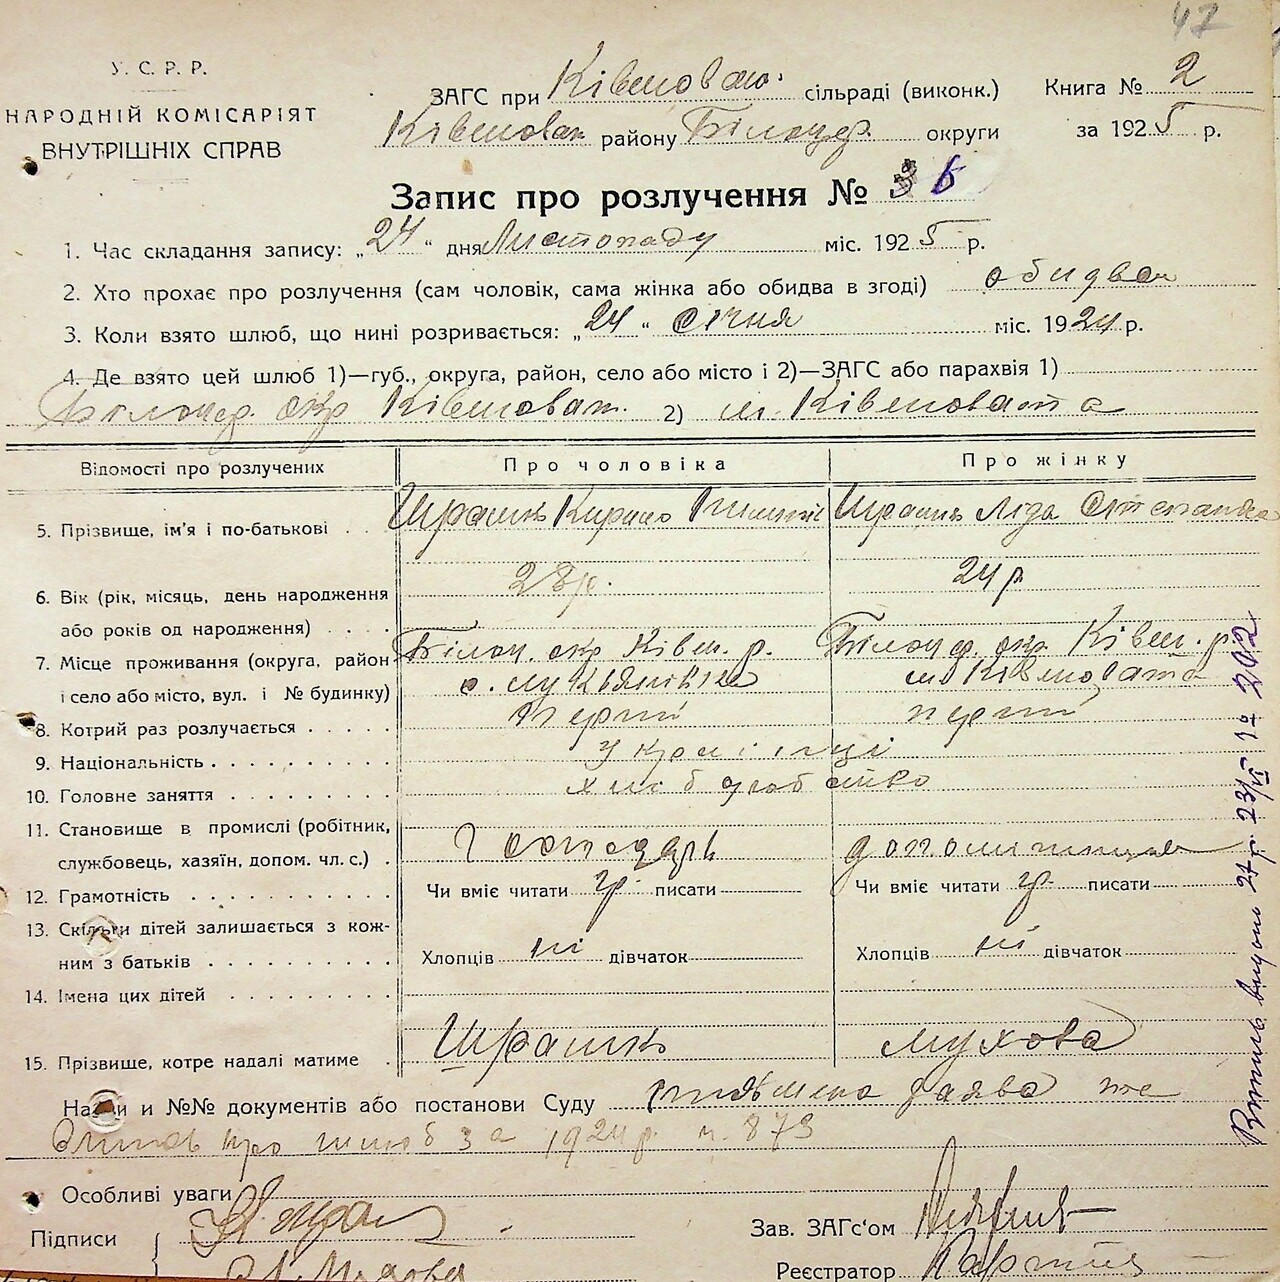 47
У. С. Р. Р.
НАРОДНІЙ КОМІСАРІЯТ
ВНУТРІШНІХ СПРАВ
ЗАГС при Ківшоват. сільраді (виконк.) Книга № 2
Ківшоват. району Білоцер. округи за 1925 р.
Запис про розлучення № 36
1. Час складання запису: „24“ дня Листопаду міс. 1925 р.
2. Хто прохає про розлучення (сам чоловік, сама жінка або обидва в згоді) обидвоє
3. Коли взято шлюб, що нині розривається: „24“ січня міс. 1924 р.
4. Де взято цей шлюб 1)—губ., округа, район, село або місто і 2)—ЗАГС або парахвія 1)
Білоцер. окр Ківшоват. 2) м. Ківшовата
Відомості про розлучених Про чоловіка Про жінку
5. Прізвище, ім'я і по-батькові Ліда Степанівна
28р. 24р
6. Вік (рік, місяць, день народження
або років од народження)
Білоц. окр Ківш. р. Білоцер. окр. Ківш. р.
7. Місце проживання (округа, район
с. Лукьянівка м Ківшовата
і село або місто, вул. і № будинку)
перший перший
8. Котрий раз розлучається
9. Національність українці
10. Головне заняття хліборобство
11. Становище в промислі (робітник,
службовець, хазяїн, допом. чл. с.) Господарь допомішниця
12. Грамотність Чи вміє читати гр. писати Чи вміє читати гр. писати
13. Скільки дітей залишається з кож-
ним з батьків Хлопців ні дівчаток Хлопців ні дівчаток
14. Імена цих дітей
15. Прізвище, котре надалі матиме Мухова
Назви и №№ документів або постанови Суду заява та
про шлюб за 1924р. ч. 873
Особливі уваги
Підписи Зав. ЗАГс'ом
Реєстратор